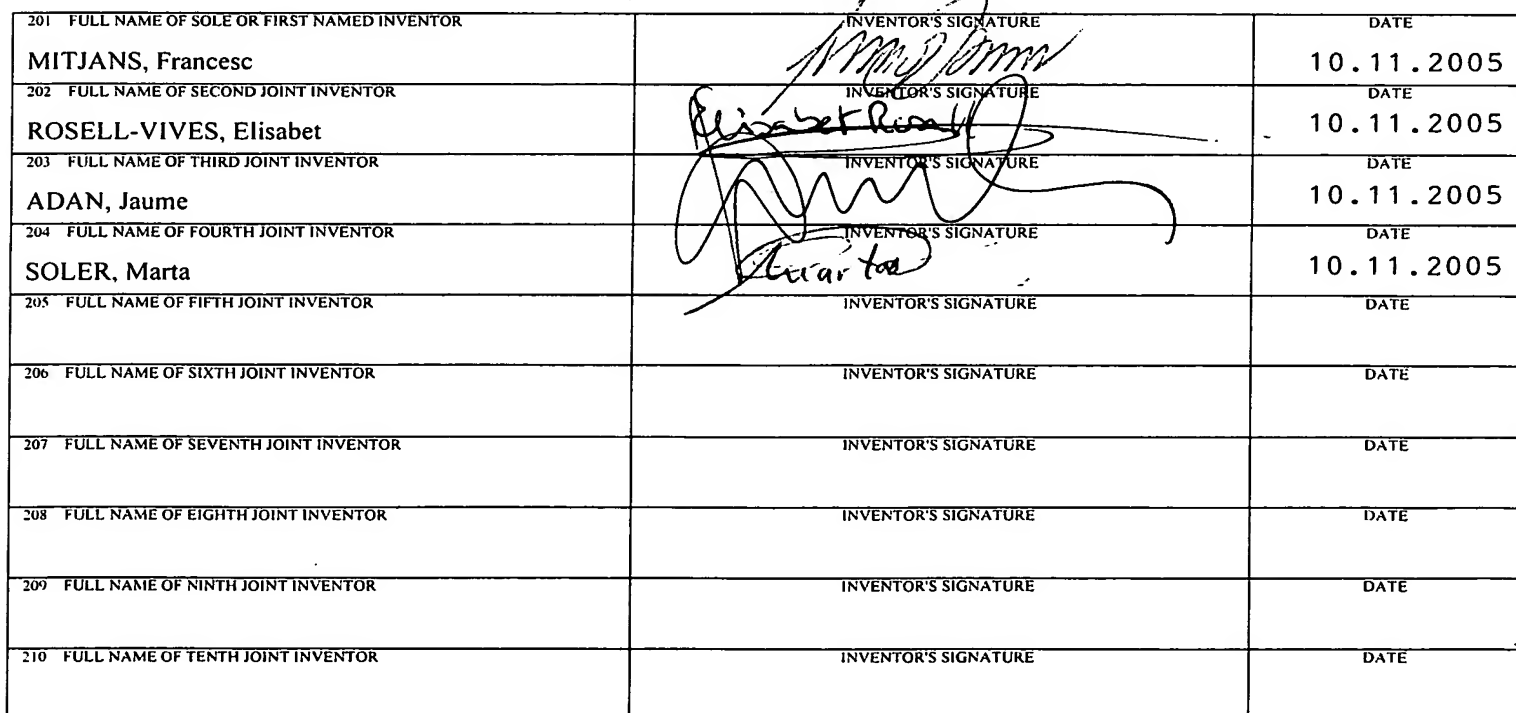 201 FULL NAME OF SOLE OR FIRST NAMED INVENTOR INVENTOR'S SIGNATURE DATE
MITJANS, Francesc 10.11.2005
202 FULL NAME OF SECOND JOINT INVENTOR INVENTOR'S SIGNATURE DATE
ROSELL-VIVES, Elisabet Elisabet Rosell 10.11.2005
203 FULL NAME OF THIRD JOINT INVENTOR INVENTOR'S SIGNATURE DATE
ADAN, Jaume 10.11.2005
204 FULL NAME OF FOURTH JOINT INVENTOR INVENTOR'S SIGNATURE DATE
SOLER, Marta Marta 10.11.2005
205 FULL NAME OF FIFTH JOINT INVENTOR INVENTOR'S SIGNATURE DATE
206 FULL NAME OF SIXTH JOINT INVENTOR INVENTOR'S SIGNATURE DATE
207 FULL NAME OF SEVENTH JOINT INVENTOR INVENTOR'S SIGNATURE DATE
208 FULL NAME OF EIGHTH JOINT INVENTOR INVENTOR'S SIGNATURE DATE
209 FULL NAME OF NINTH JOINT INVENTOR INVENTOR'S SIGNATURE DATE
210 FULL NAME OF TENTH JOINT INVENTOR INVENTOR'S SIGNATURE DATE